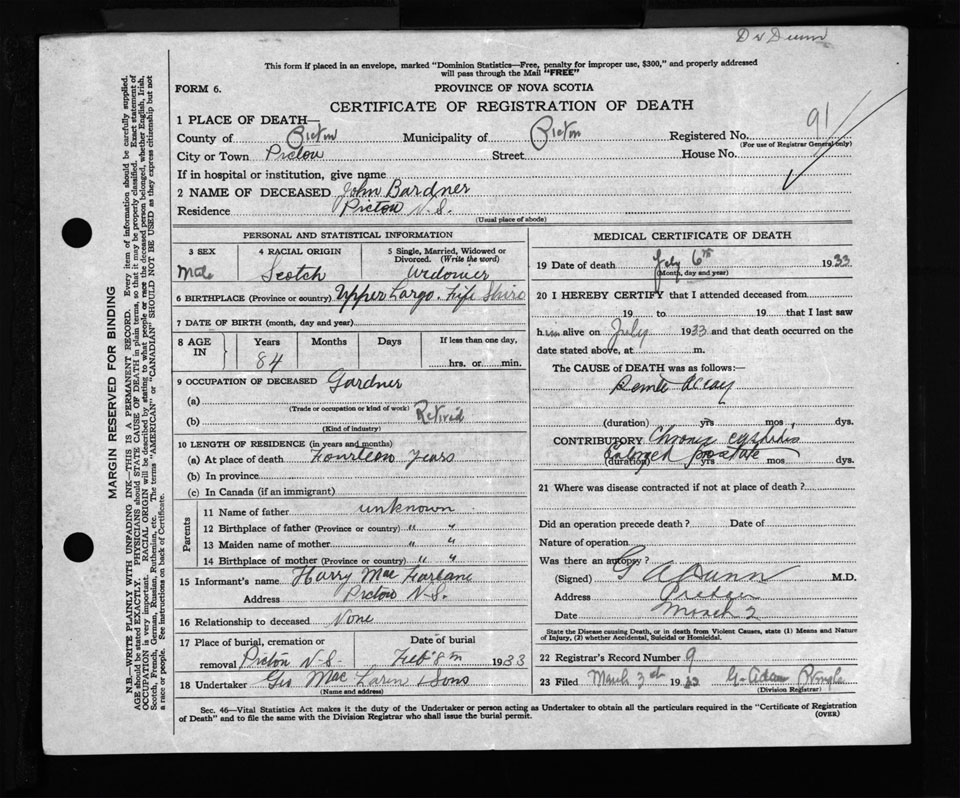 Dr Dunn
This form if placed in an envelope, marked "Dominion Statistics—Free, penalty for improper use, $300," and properly addressed
will pass through the Mail "FREE"
FORM 6. PROVINCE OF NOVA SCOTIA
CERTIFICATE OF REGISTRATION OF DEATH
91
1 PLACE OF DEATH—
County of Pictou Municipality of Pictou Registered No.
(For use of Registrar General only)
City or Town Pictou Street House No.
If in hospital or institution, give name
2 NAME OF DECEASED John Bardner
Residence Pictou N.S.
(Usual place of abode)
PERSONAL AND STATISTICAL INFORMATION
3 SEX 4 RACIAL ORIGIN 5 Single, Married, Widowed or
Divorced. (Write the word)
Male Scotch Widower
6 BIRTHPLACE (Province or country) Upper Largo. Fife Shire
7 DATE OF BIRTH (month, day and year)
8 AGE IN Years Months Days If less than one day,
84 hrs. or min.
9 OCCUPATION OF DECEASED Gardner
(a)
(Trade or occupation or kind of work)
(b) Retired
(Kind of industry)
10 LENGTH OF RESIDENCE (in years and months)
(a) At place of death Fourteen years
(b) In province
(c) In Canada (if an immigrant)
Parents
11 Name of father unknown
12 Birthplace of father (Province or country) " "
13 Maiden name of mother " "
14 Birthplace of mother (Province or country) " "
15 Informant's name Harry MacFarlane
Address Pictou N.S.
16 Relationship to deceased None
17 Place of burial, cremation or Date of burial
removal Pictou N-S- Feb 8th 1933
18 Undertaker Geo MacLaren & Sons
(Name and address)
MEDICAL CERTIFICATE OF DEATH
19 Date of death Feby 6th 1933
(Month, day and year)
20 I HEREBY CERTIFY that I attended deceased from
19 to 19 that I last saw
h alive on July 1933 and that death occurred on the
date stated above, at m.
The CAUSE of DEATH was as follows:—
Senile decay
(duration) yrs mos dys.
CONTRIBUTORY Chronic cystitis
Enlarged prostate
(duration) yrs mos dys.
21 Where was disease contracted if not at place of death?
Did an operation precede death? Date of
Nature of operation
Was there an autopsy?
(Signed) G A Dunn M.D.
Address Pictou
Date March 2
State the Disease causing Death, or in death from Violent Causes, state (1) Means and Nature
of Injury, (2) whether Accidental, Suicidal or Homicidal.
22 Registrar's Record Number 9
23 Filed March 3rd 1933 G. Adam Pringle
(Division Registrar)
Sec. 46—Vital Statistics Act makes it the duty of the Undertaker or person acting as Undertaker to obtain all the particulars required in the "Certificate of Registration
of Death" and to file the same with the Division Registrar who shall issue the burial permit. (OVER)
MARGIN RESERVED FOR BINDING
N.B.—WRITE PLAINLY WITH UNFADING INK—THIS IS A PERMANENT RECORD. Every item of information should be carefully supplied.
AGE should be stated EXACTLY. PHYSICIANS should STATE CAUSE OF DEATH in plain terms, so that it may be properly classified. Exact statement of
OCCUPATION is very important. RACIAL ORIGIN will be described by stating to what people or race the deceased person belonged, whether English, Irish,
Scotch, French, German, Russian, Ruthenian, etc. The terms "AMERICAN" or "CANADIAN" SHOULD NOT BE USED as they express citizenship but not
a race or people. See instructions on back of Certificate.